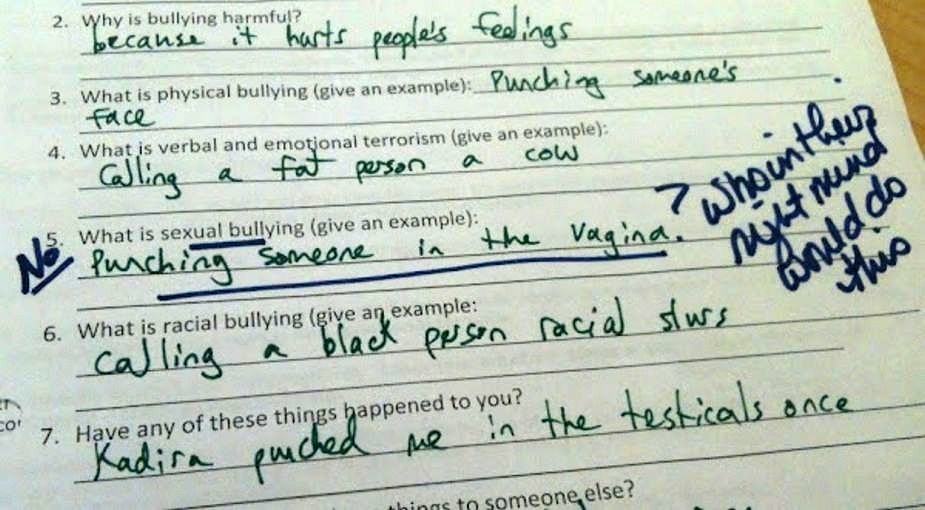 2. Why is bullying harmful?
because it hurts people's feelings
3. What is physical bullying (give an example): Punching someone's
face
4. What is verbal and emotional terrorism (give an example):
Calling a fat person a cow
5. What is sexual bullying (give an example):
No Punching someone in the vagina. ? who in their
right mind
would do
this
6. What is racial bullying (give an example:
Calling a black person racial slurs
7. Have any of these things happened to you?
Kadira punched me in the testicals once
things to someone else?